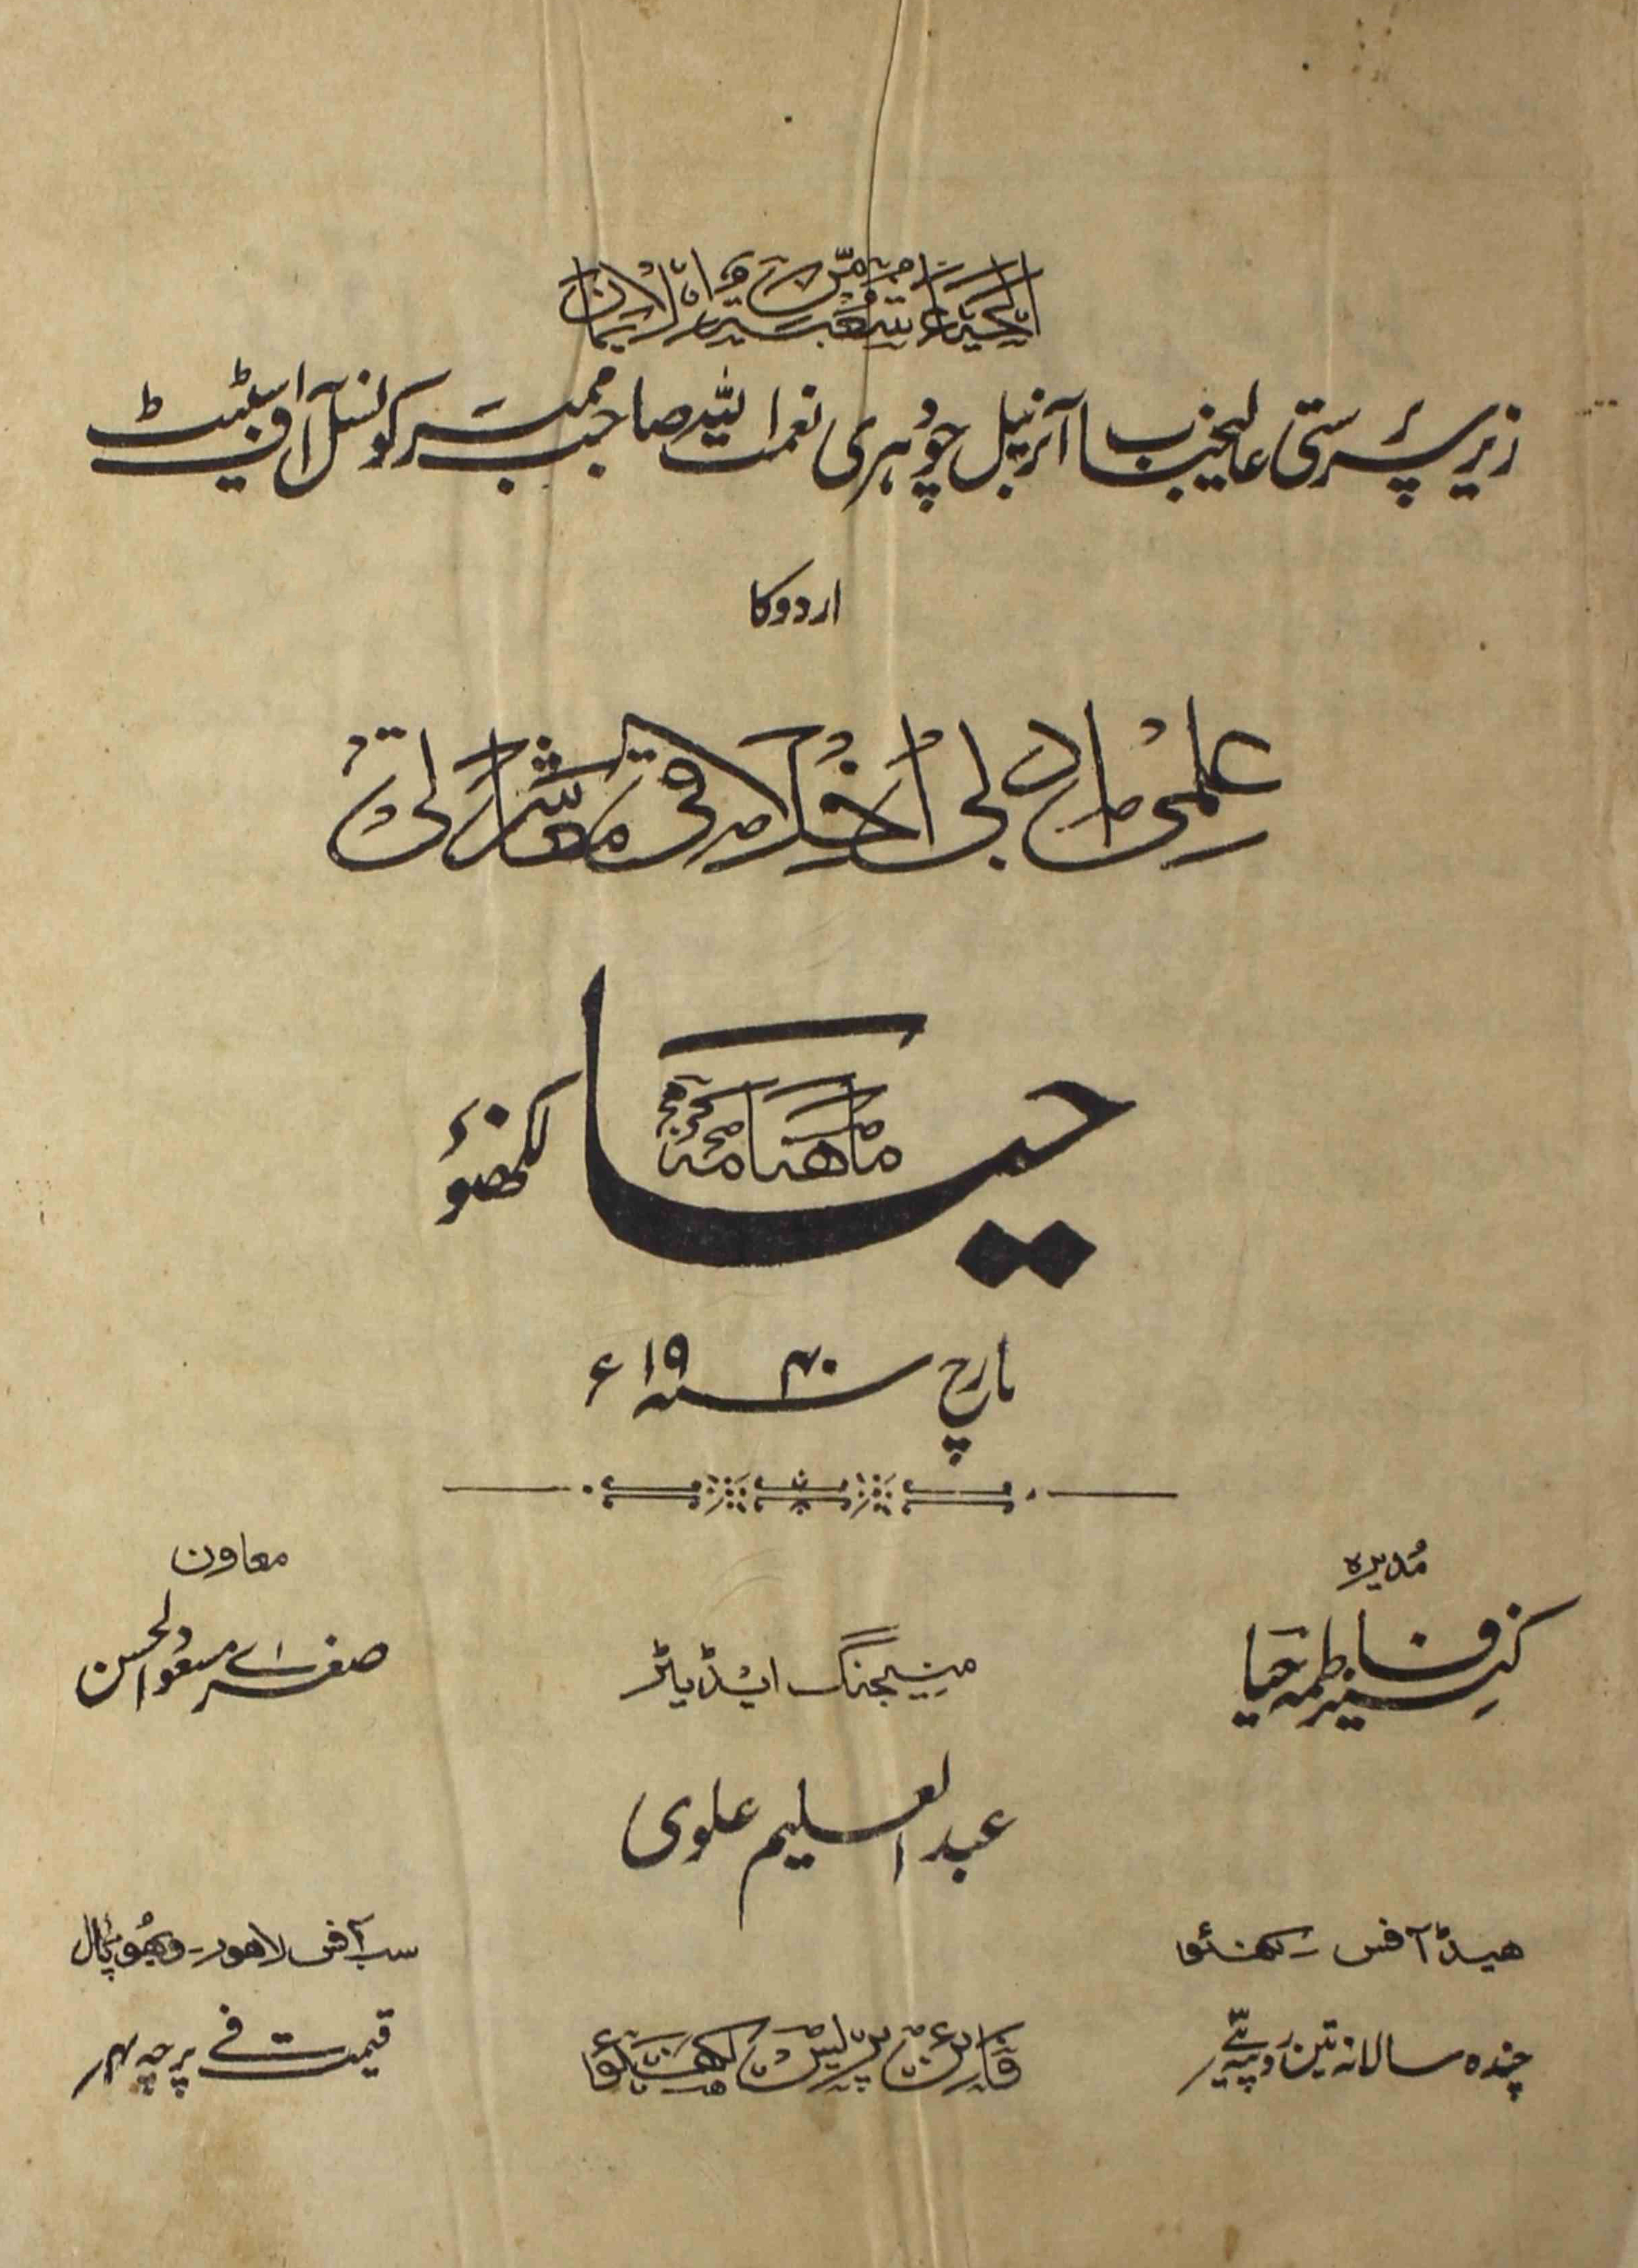 الحیاء شعبة من الایمان
زیر سرپرستی عالیجناب آنریبل چودہری نعمت اللہ صاحب ممبر کونسل آف اسٹیٹ
اردو کا
علمی ادبی اخلاقی معاشرتی
ماهنامہ
حیا
لکھنؤ
مارچ سنہ ۱۹۴۰ء
مُدیرہ
کنیز فاطمہ حیا
معاون
صغرے مسعود الحسن
منیجنگ ایڈیٹر
عبد العلیم علوی
ھیڈ آفس لکھنؤ
سب آفس لاھور۔ و بھوپال
چندہ سالانہ تین روپئے
پریس لکھنؤ
قیمت فی پرچہ ۴؍